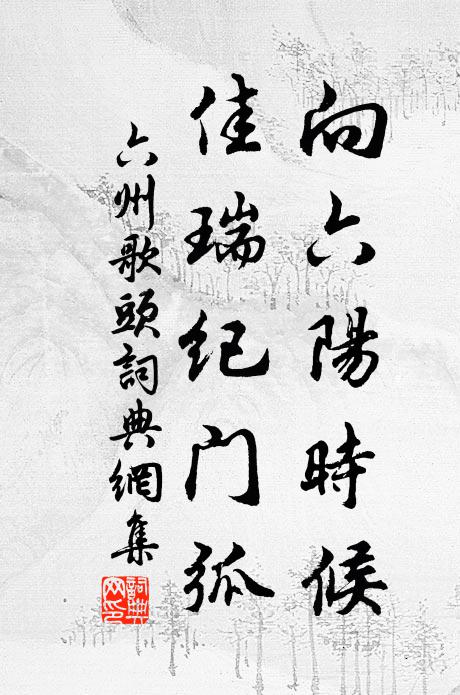 向六陽時候
佳瑞纪门弧
六州歌頭詞典網集